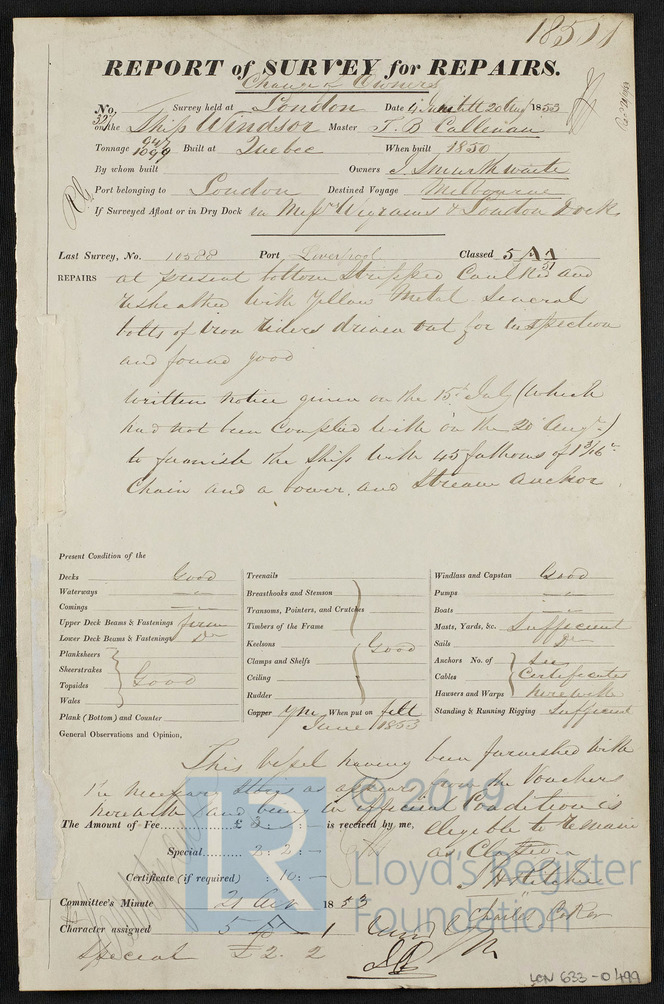 18511
REPORT of SURVEY for REPAIRS.
Change of Owners
No. Survey held at London Date 4 June till 20 Aug 1853
on the Ship Windsor Master T. B. Callenan
Tonnage 947 1099 Built at Quebec When built 1850
By whom built Owners J. Smurthwaite
Port belonging to London Destined Voyage Melbourne
If Surveyed Afloat or in Dry Dock in Messrs Wigrams & London Dock
Last Survey, No. 10588 Port Liverpool Classed 5 A 1
REPAIRS at present bottom Stripped Caulked and
resheathed with Yellow Metal Several
bolts of iron riders driven out for inspection
and found good
Written notice given on the 15th July (which
had not been Complied with on the 20 Augt)
to furnish the Ship with 45 fathoms of 1 9/16
Chain and a bower and Stream Anchor
Present Condition of the
Decks Good
Waterways
Comings
Upper Deck Beams & Fastenings firm
Lower Deck Beams & Fastenings Do
Planksheers
Sheerstrakes
Topsides Good
Wales
Plank (Bottom) and Counter
Treenails
Breasthooks and Stemson
Transoms, Pointers, and Crutches
Timbers of the Frame
Keelsons Good
Clamps and Shelfs
Ceiling
Rudder
Copper YM When put on felt
June 1853
Windlass and Capstan Good
Pumps
Boats
Masts, Yards, &c. Sufficient
Sails Do
Anchors No. of See
Cables Certificates
Hawsers and Warps herewith
Standing & Running Rigging Sufficient
General Observations and Opinion,
This vessel having been furnished with
the necessary Stores as appears from the Vouchers
herewith and being in efficient Condition is
eligible to remain
as Classed
The Amount of Fee £ 3 : : - is received by me,
Special 2 : 2 : -
Certificate (if required) : 10 : -
Committee's Minute 21 1853
Character assigned 5 A 1
Charles Coker
Special £2. 2
LR
© 2019
Lloyd's Register
Foundation
LCN 633-0499